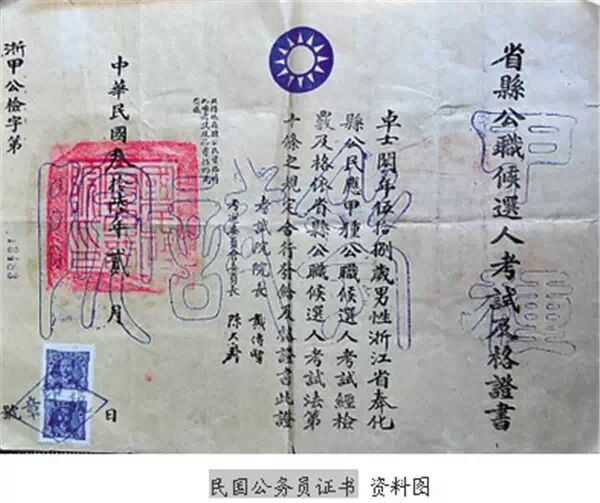 省縣公職候選人考試及格證書
卓士閎年伍拾捌歲男性浙江省奉化
縣公民應甲種公職候選人考試經檢
覈及格依省縣公職候選人考試法第
十條之規定合行發給及格證書此證
考試院院長 戴傳賢
考選委員會委員長 陳大齊
中華民國叁拾柒年貳月 日
浙甲公檢字第 號
民国公务员证书 资料图